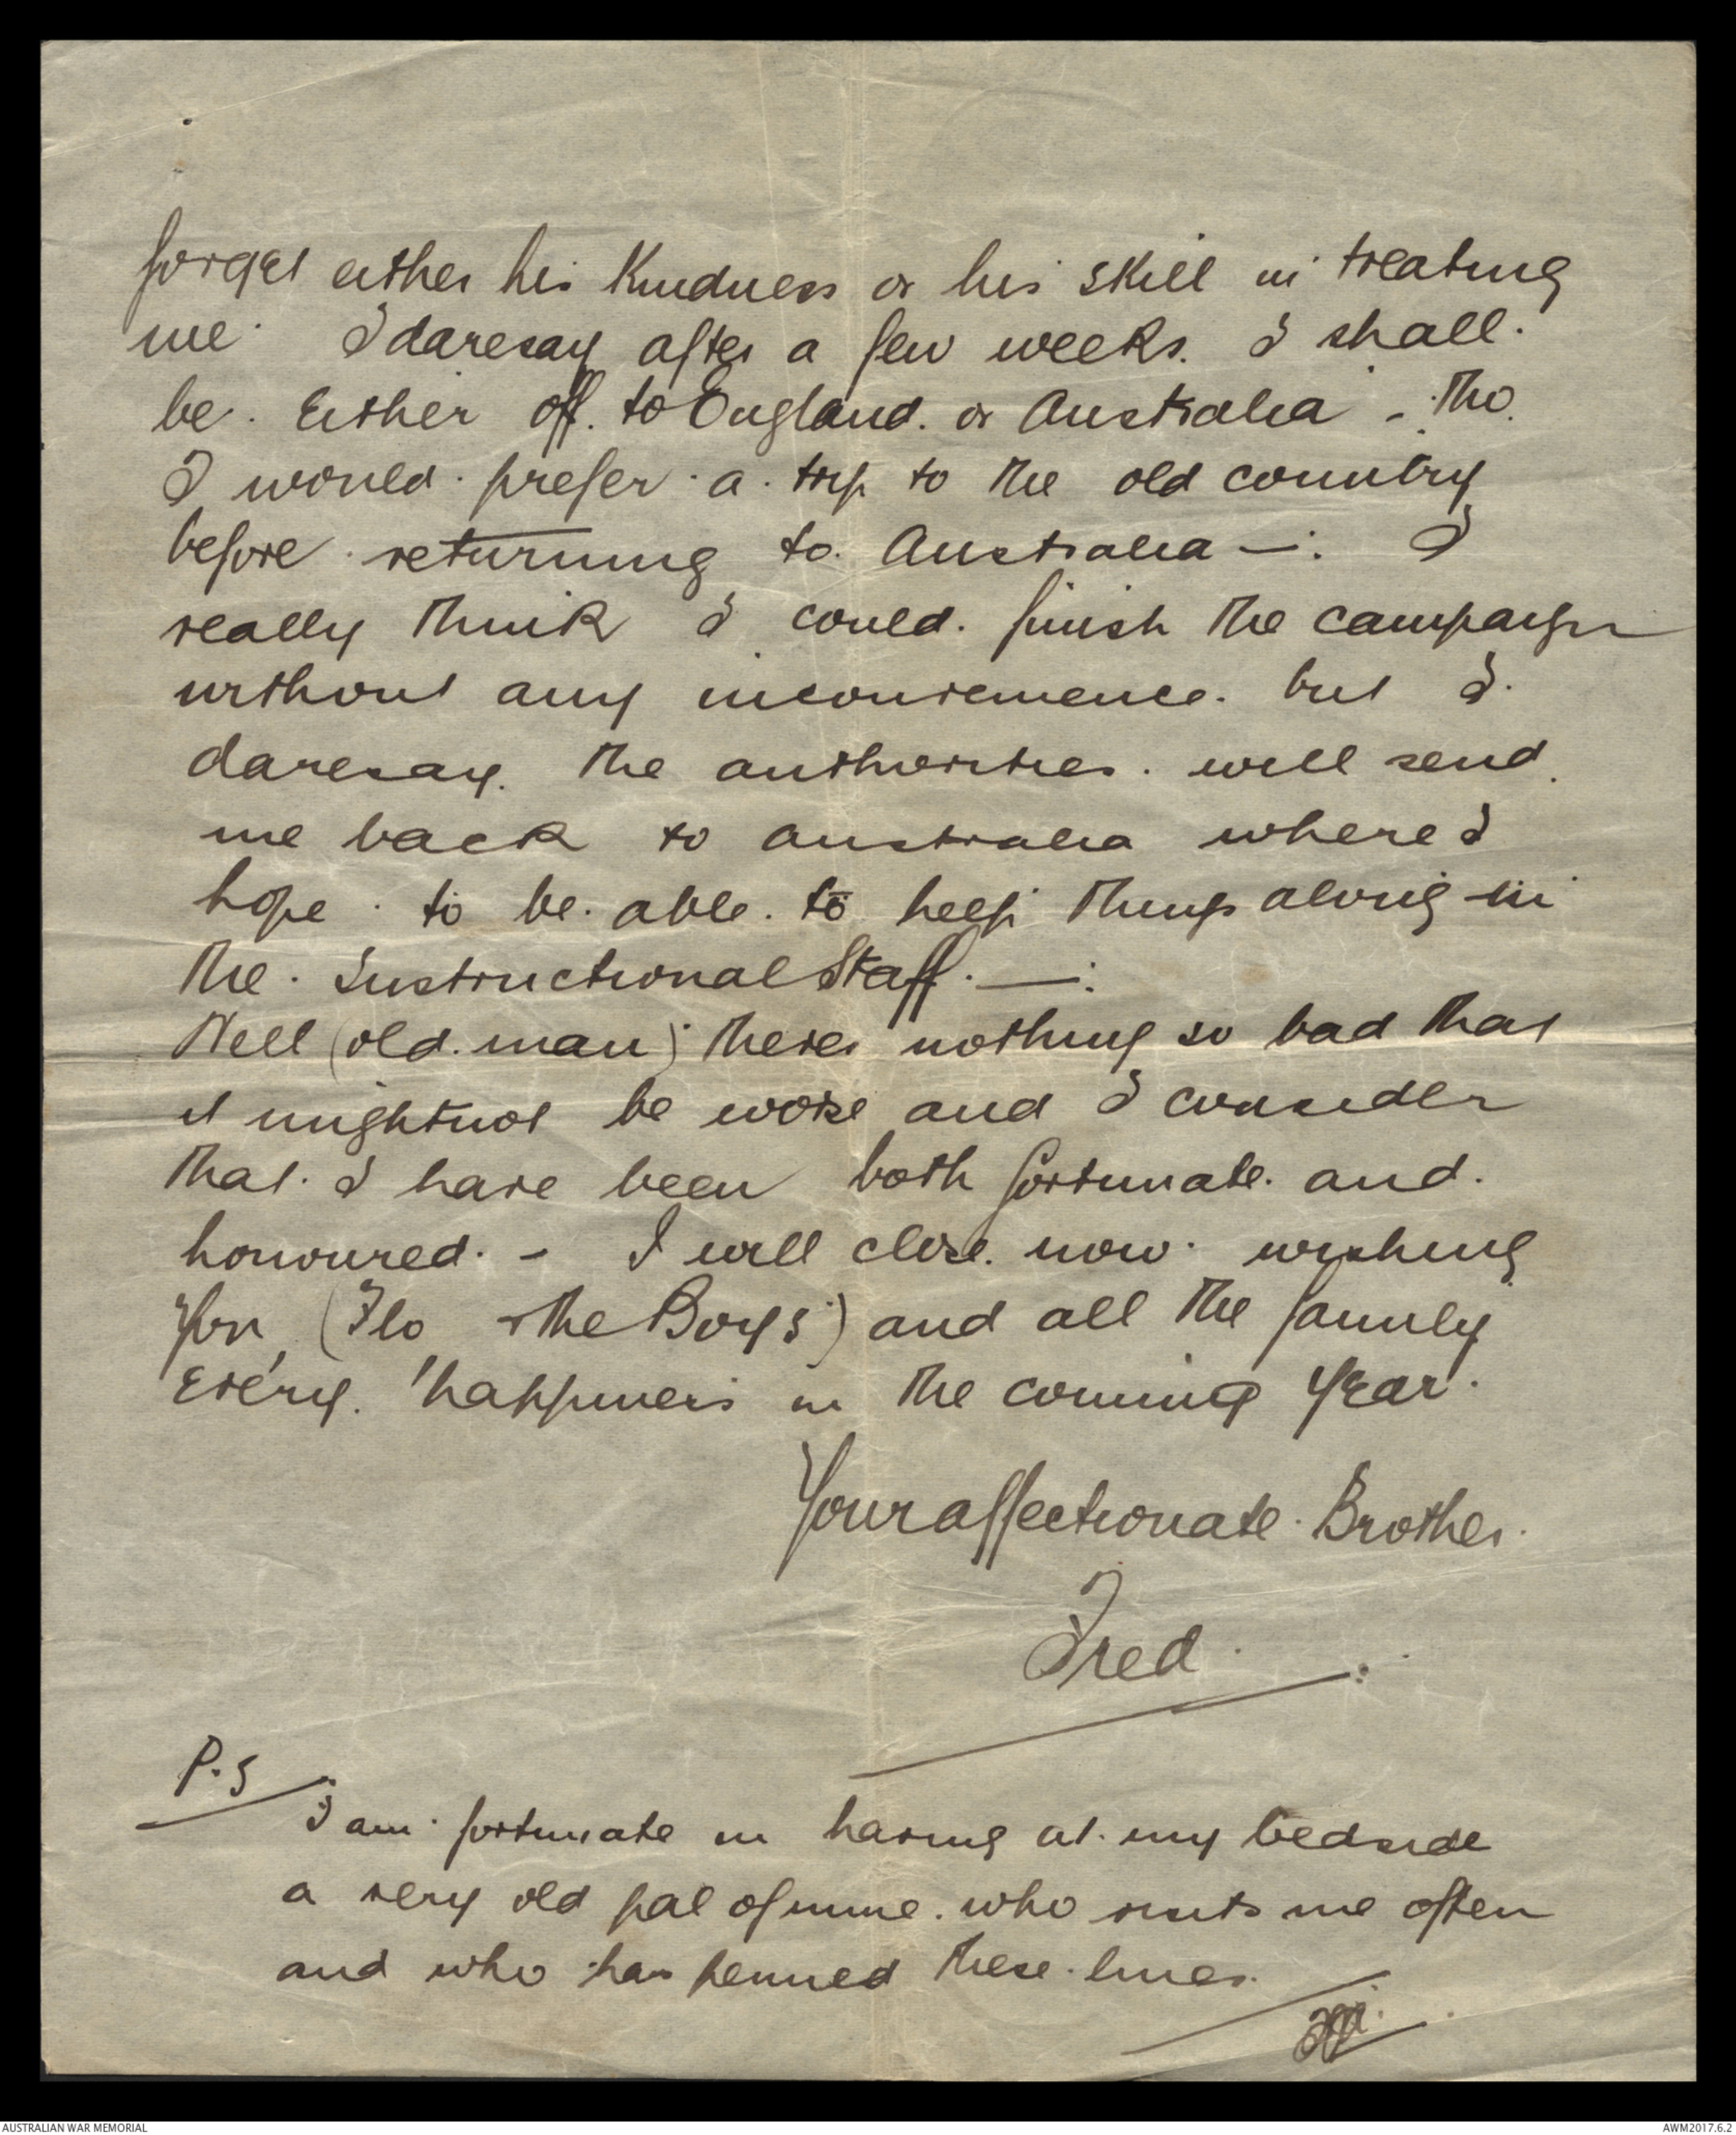 forget either his Kindness or his skill in treating
me. I daresay after a few weeks. I shall.
be. Either off. to England. or Australia - Tho.
I would. prefer. a. trip to the old country
before returning to. Australia —: I
really think I could. finish the campaign
without any inconvenience. but I.
daresay. the authorities. will send.
me back to Australia where I
hope. to be. able. to help things along in
the. Instructional Staff. —:
Well (old. man) theres nothing so bad that
it mightnot be worse and I consider
that. I have been both fortunate. and.
honoured. - I will close. now. wishing
You, (Flo + the Boys) and all the family
Every. happiness in the coming Year.
Your affectionate. Brother.
Fred.
P.S
I am. fortunate in having at. my bedside
a very old pal of mine. who visits me often
and who has penned these. lines.
AUSTRALIAN WAR MEMORIAL
AWM2017.6.2